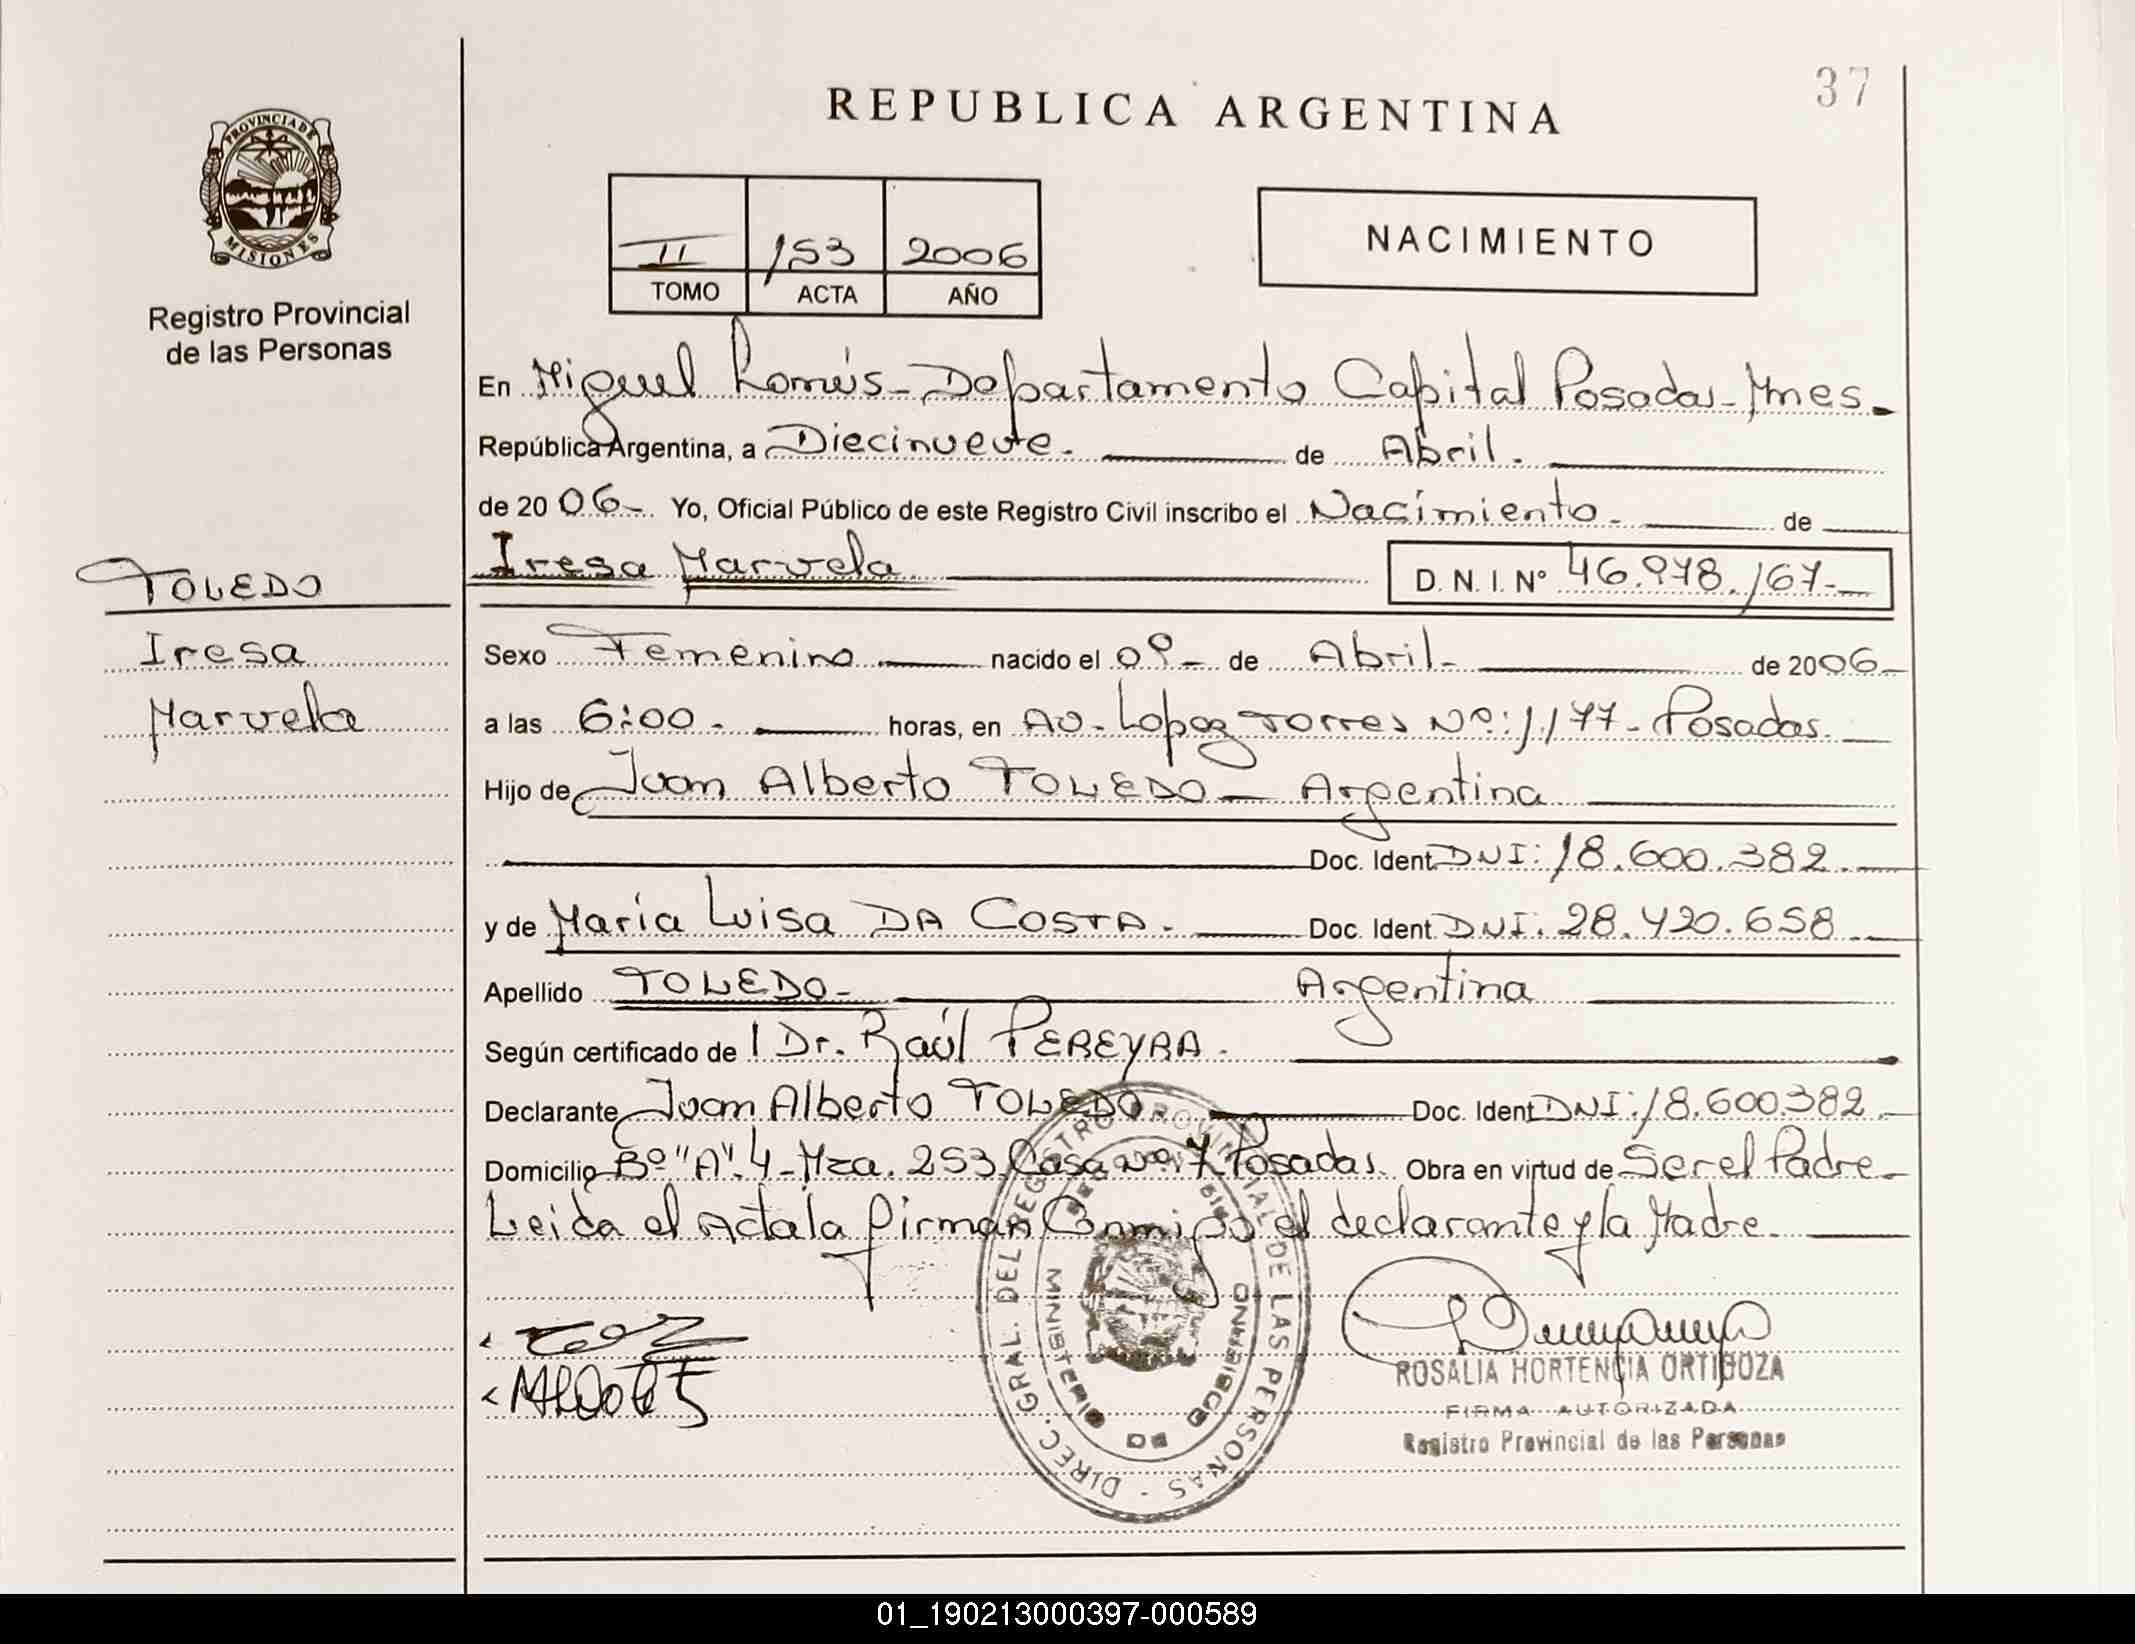 37
REPUBLICA ARGENTINA
PROVINCIA DE
MISIONES
Registro Provincial
de las Personas
II 153 2006
TOMO ACTA AÑO
NACIMIENTO
En Miguel Lanús - Departamento Capital Posadas - Mnes.
República Argentina, a Diecinueve. de Abril.
de 2006 - Yo, Oficial Público de este Registro Civil inscribo el Nacimiento. de
Iresa Marvela D. N. I. Nº 46.978.167.-
TOLEDO
Iresa
Marvela
Sexo Femenino nacido el 09 - de Abril - de 2006 -
a las 6:00 - horas, en Av. Lopez Torres Nº: 1.177 - Posadas.
Hijo de Juan Alberto TOLEDO - Argentina
Doc. Ident. DNI: 18.600.382.
y de María Luisa DA COSTA. Doc. Ident. DNI. 28.420.658
Apellido TOLEDO - Argentina
Según certificado de l Dr. Raúl PEREYRA.
Declarante Juan Alberto TOLEDO Doc. Ident DNI: 18.600.382.
Domicilio Bº "A". 4 - Mza. 253 Casa Nº: 7 Posadas. Obra en virtud de Ser el Padre -
Leida el Acta la firman Conmigo el declarante y la Madre.
DIREC. GRAL. DEL REGISTRO PROVINCIAL DE LAS PERSONAS
MINISTERIO DE GOBIERNO
ROSALIA HORTENCIA ORTIGOZA
FIRMA AUTORIZADA
Registro Provincial de las Personas
01_190213000397-000589